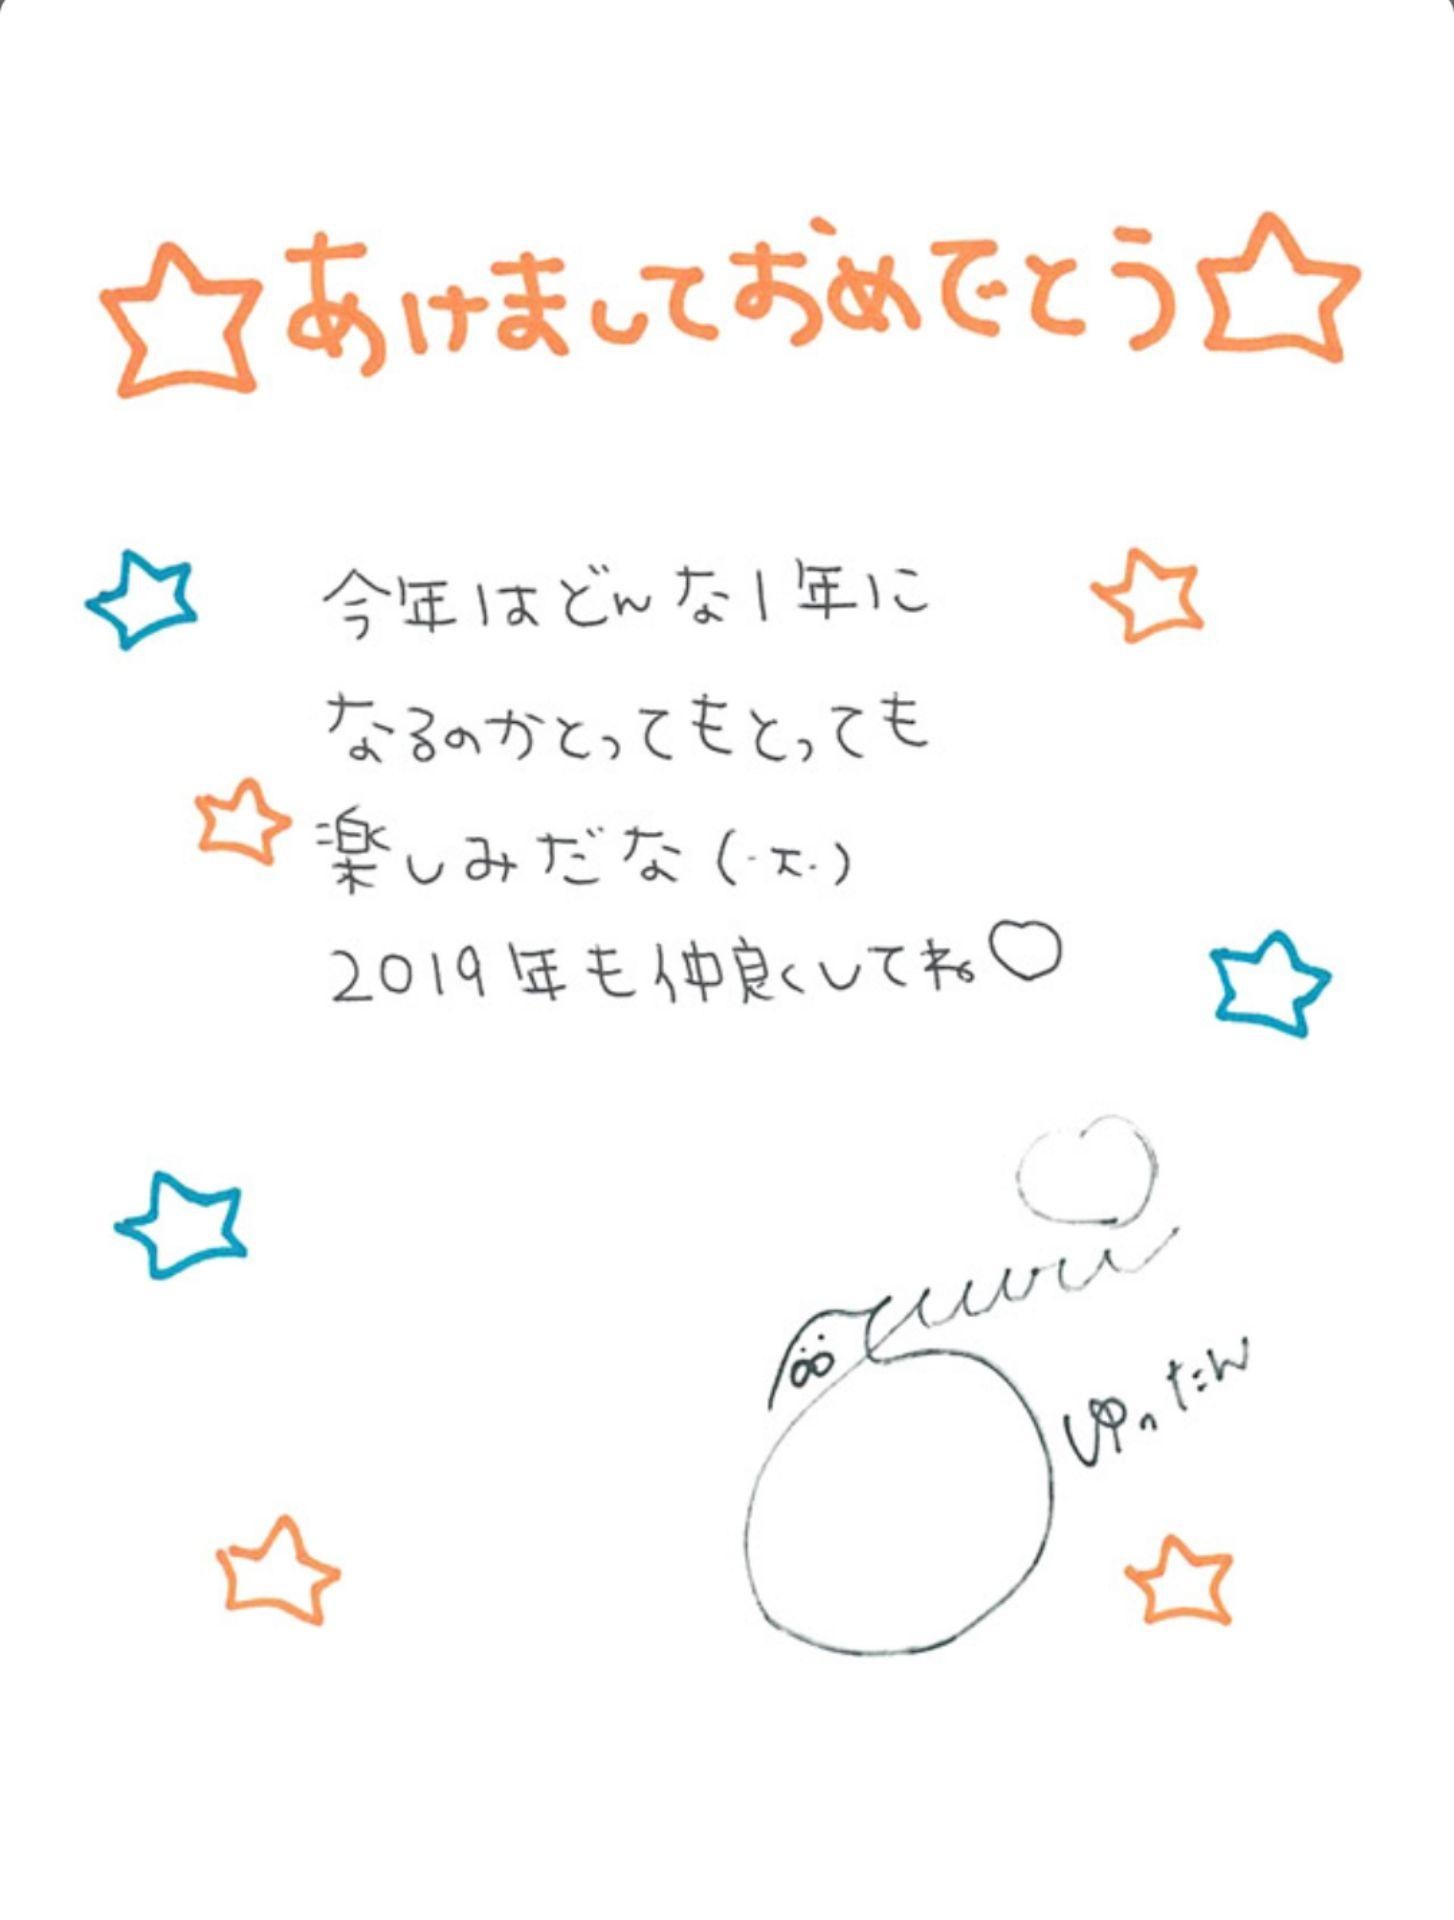 ☆あけましておめでとう☆
今年はどんな1年に
なるのかとってもとっても
楽しみだな(・π・)
2019年も仲良くしてね♡